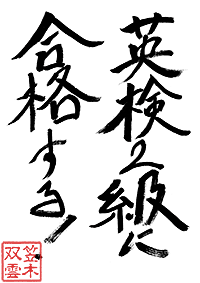 英検2級に
合格する!
笠木
双雲